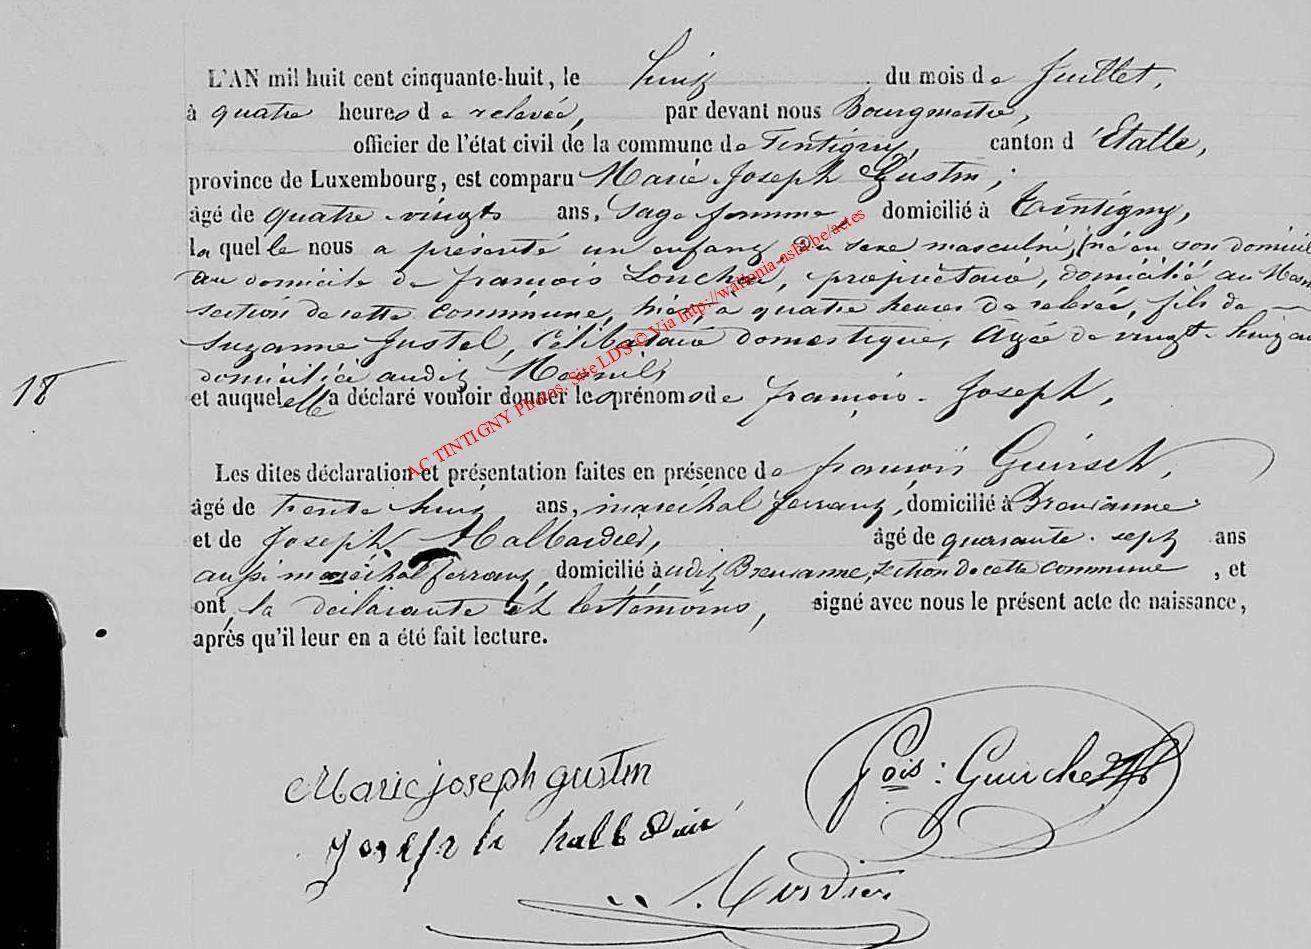 L'AN mil huit cent cinquante-huit, le huit du mois de Juillet,
à quatre heures de relevée, par devant nous Bourgmestre,
officier de l'état civil de la commune de Tintigny, canton d'Etalle,
province de Luxembourg, est comparu Marie-Joseph Gustin,
âgé de quatre-vingts ans, Sage femme, domicilié à Tintigny,
laquelle nous a présenté un enfant du sexe masculin, né en son domicile
au domicile de françois, propriétaire, domicilié au
section de cette commune, hier, à quatre heures de relevée, fils de
Suzanne Gustel, Célibataire domestique, Agée de vingt-huit
domiciliée audit
et auquel elle a déclaré vouloir donner les prénoms de françois-Joseph,
18
Les dites déclaration et présentation faites en présence de françois
âgé de trente huit ans, maréchal ferrant, domicilié à Breuvanne
et de Joseph Halbardier, âgé de quarante-sept ans
aussi maréchal ferrant, domicilié audit Breuvanne, section de cette commune, et
ont, la déclarante et les témoins, signé avec nous le présent acte de naissance,
après qu'il leur en a été fait lecture.
Marie joseph gustin
fois: Guirche
Joseph
AC TINTIGNY Photos. Site LDS © Via http://wallonia-asbl.be/actes